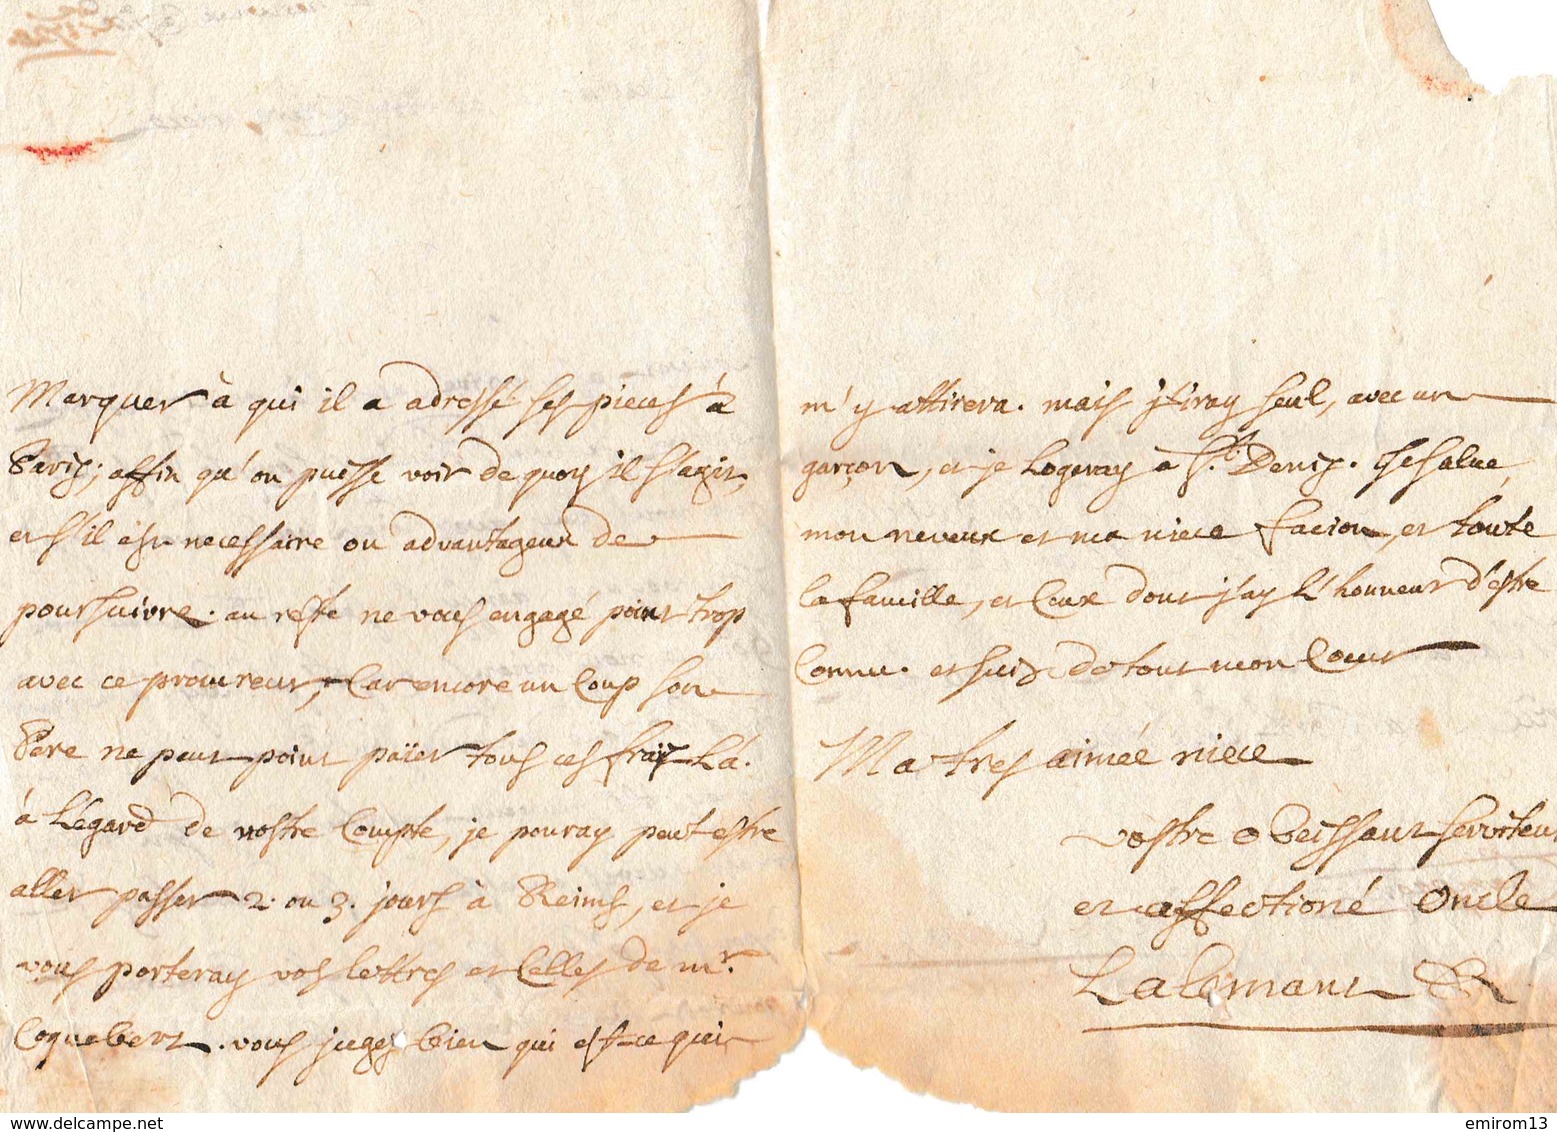 Marquer à qui il a adressé ses pieces à
Paris; affin qu'on puisse voir de quoy il s'agit,
et s'il est necessaire ou advantageux de
poursuivre. au reste ne vous engagé point trop
avec ce procureur, Car encore un Coup son
Pere ne peut point païer tous ces frais Là.
à L'égard de vostre Compte, je pouray peut estre
aller passer 2. ou 3. jours à Reims, et je
vous porteray vos lettres et Celles de mr.
Coquebert. vous jugez bien qui est-ce qui
m'y attirera. mais j'iray seul, avec un
garçon, et je Logeray à St. Denis. Je salue
mon neveux et ma niece facion, et toute
la famille, et Ceux dont j'ay L'honneur d'estre
Connu. et suis de tout mon Coeur
Ma tres aimée niece
vostre obeissant serviteur
et affectioné Oncle
Lalemant
www.delcampe.net
emirom13